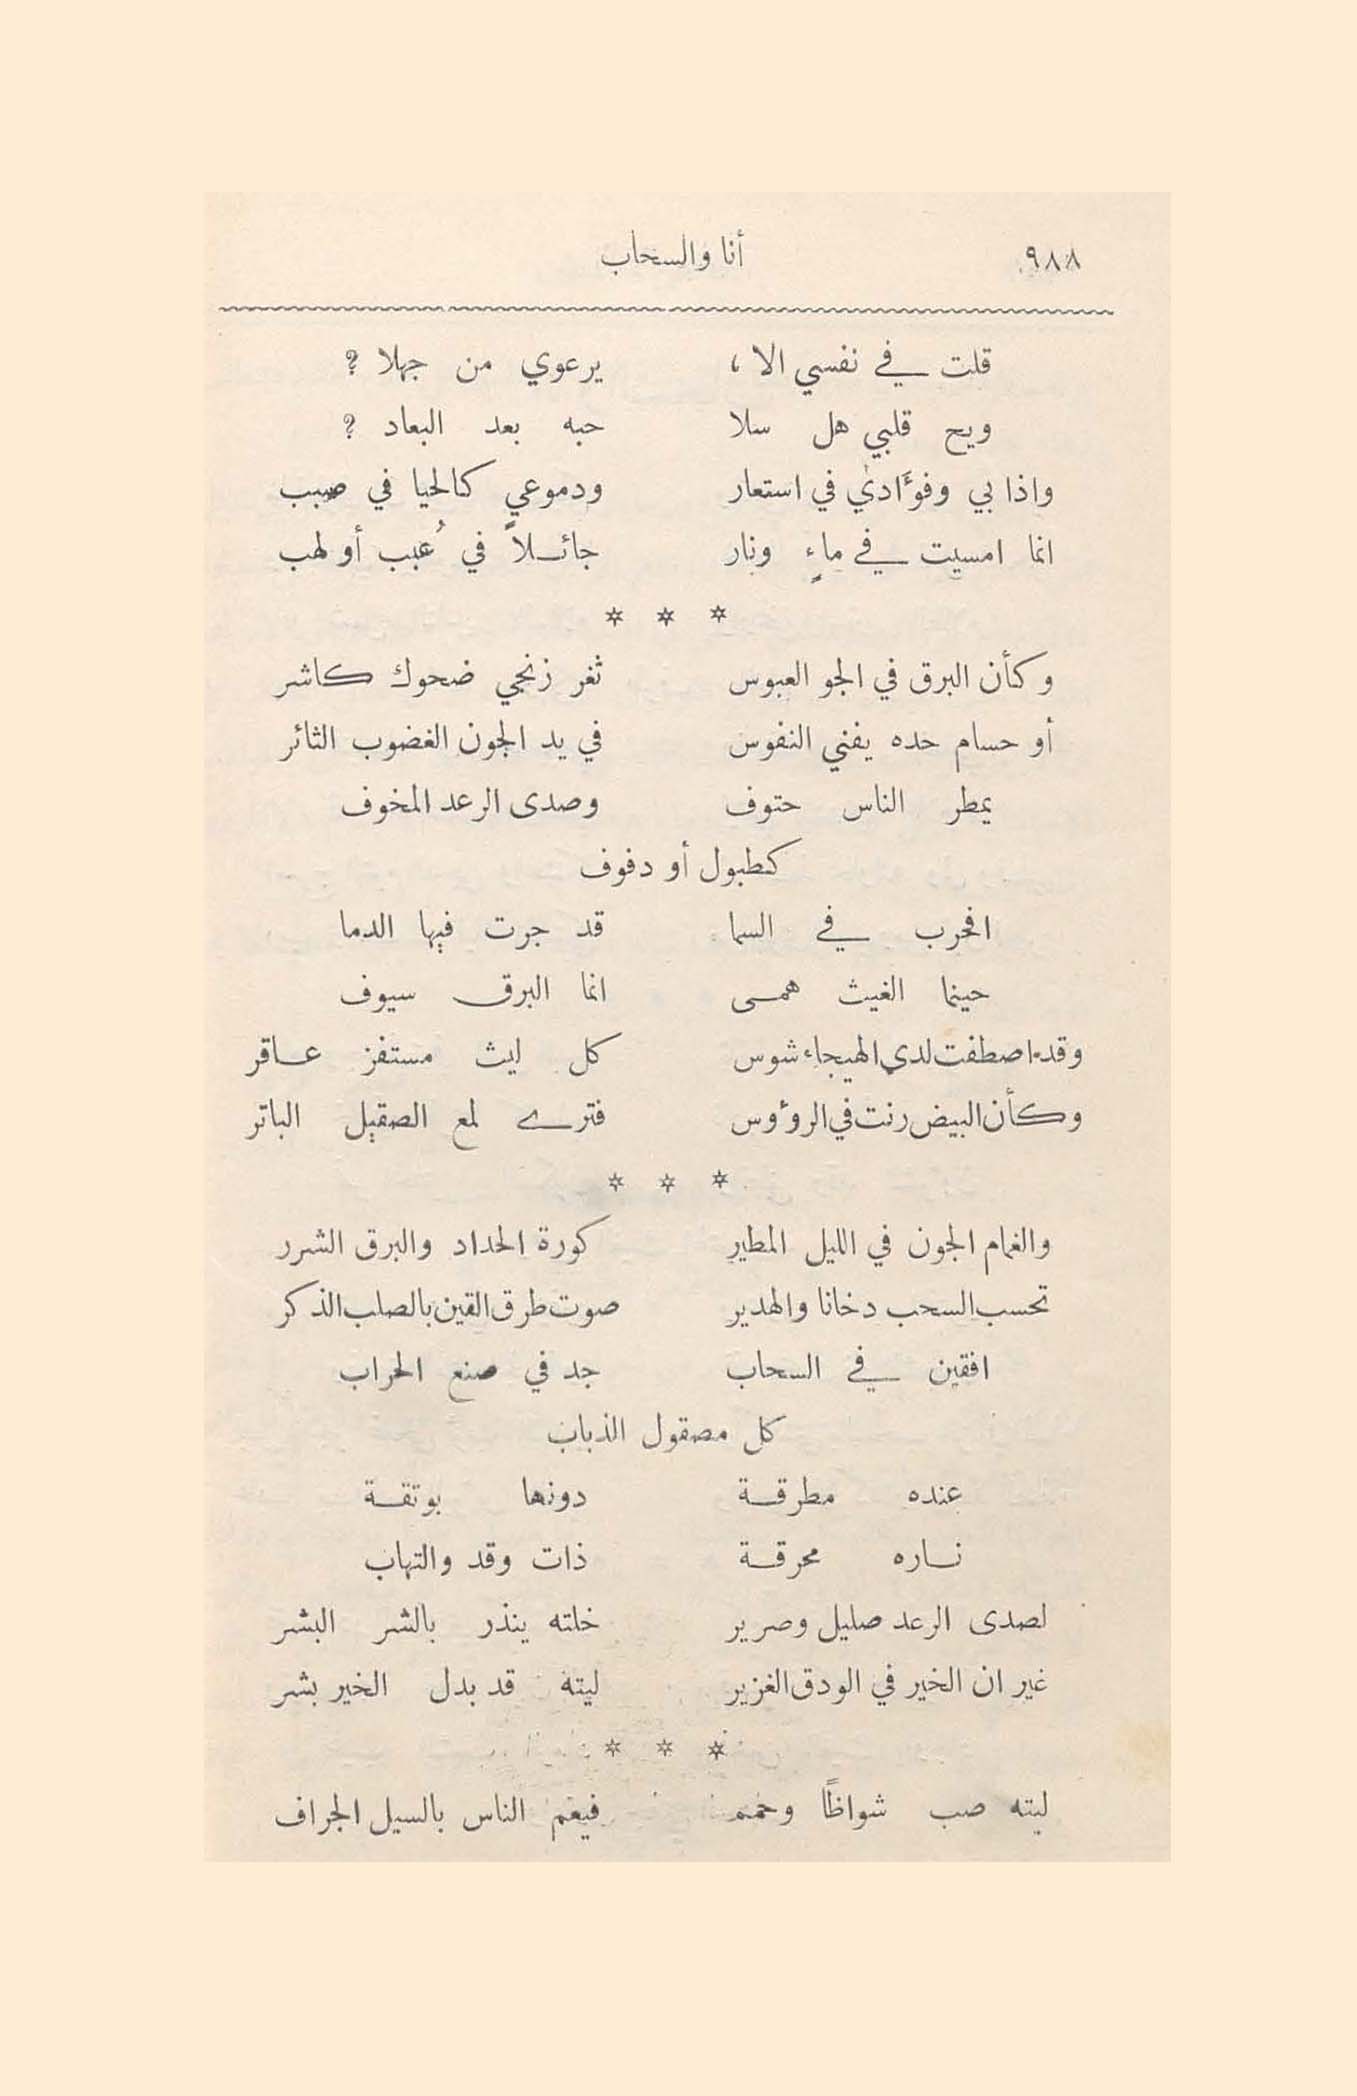 ٩٨٨ أنا والسحاب
قلت في نفسي الا، يرعوي من جهلا ؟
ويح قلبي هل سلا حبه بعد البعاد ؟
واذا بي وفؤَادي في استعار ودموعي كالحيا في صبب
انما امسيت في ماءٍ ونار جائلاً في عُبب أو لهب
* * *
وكأن البرق في الجو العبوس ثغر زنجي ضحوك كاشر
أو حسام حده يفني النفوس في يد الجون الغضوب الثائر
يمطر الناس حتوف وصدى الرعد المخوف
كطبول أو دفوف
افحرب في السما قد جرت فيها الدما
حينما الغيث همى انما البرق سيوف
وقد اصطفت لدى الهيجاء شوس كل ليث مستفز عاقر
وكأن البيض رنت في الرؤوس فترے لمع الصقيل الباتر
* * *
والغمام الجون في الليل المطير كورة الحداد والبرق الشرر
تحسب السحب دخانا والهدير صوت طرق القين بالصلب الذكر
افقين في السحاب جد في صنع الحراب
كل مصقول الذباب
عنده مطرقة دونها بوتقة
ناره محرقة ذات وقد والتهاب
لصدى الرعد صليل وصرير خلته ينذر بالشر البشر
غير ان الخير في الودق الغزير ليته قد بدل الخير بشر
* * *
ليته صب شواظًا وحمم فيعم الناس بالسيل الجراف